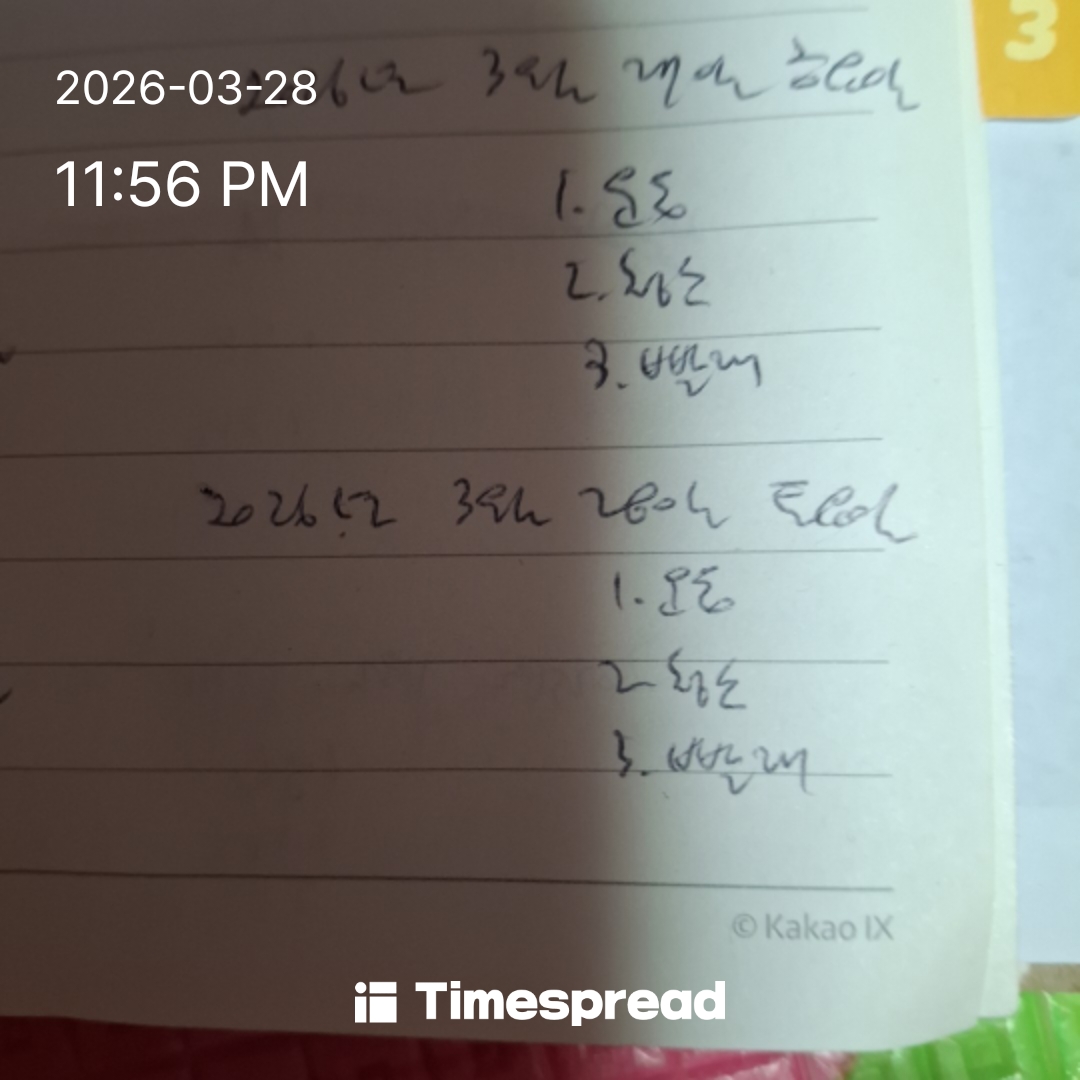 2026-03-28
11:56 PM
3
2026년 3월 27일 금요일
1. 운동
2. 청소
3. 빨래
2026년 3월 28일 토요일
1. 운동
2. 청소
3. 빨래
© Kakao IX
Timespread